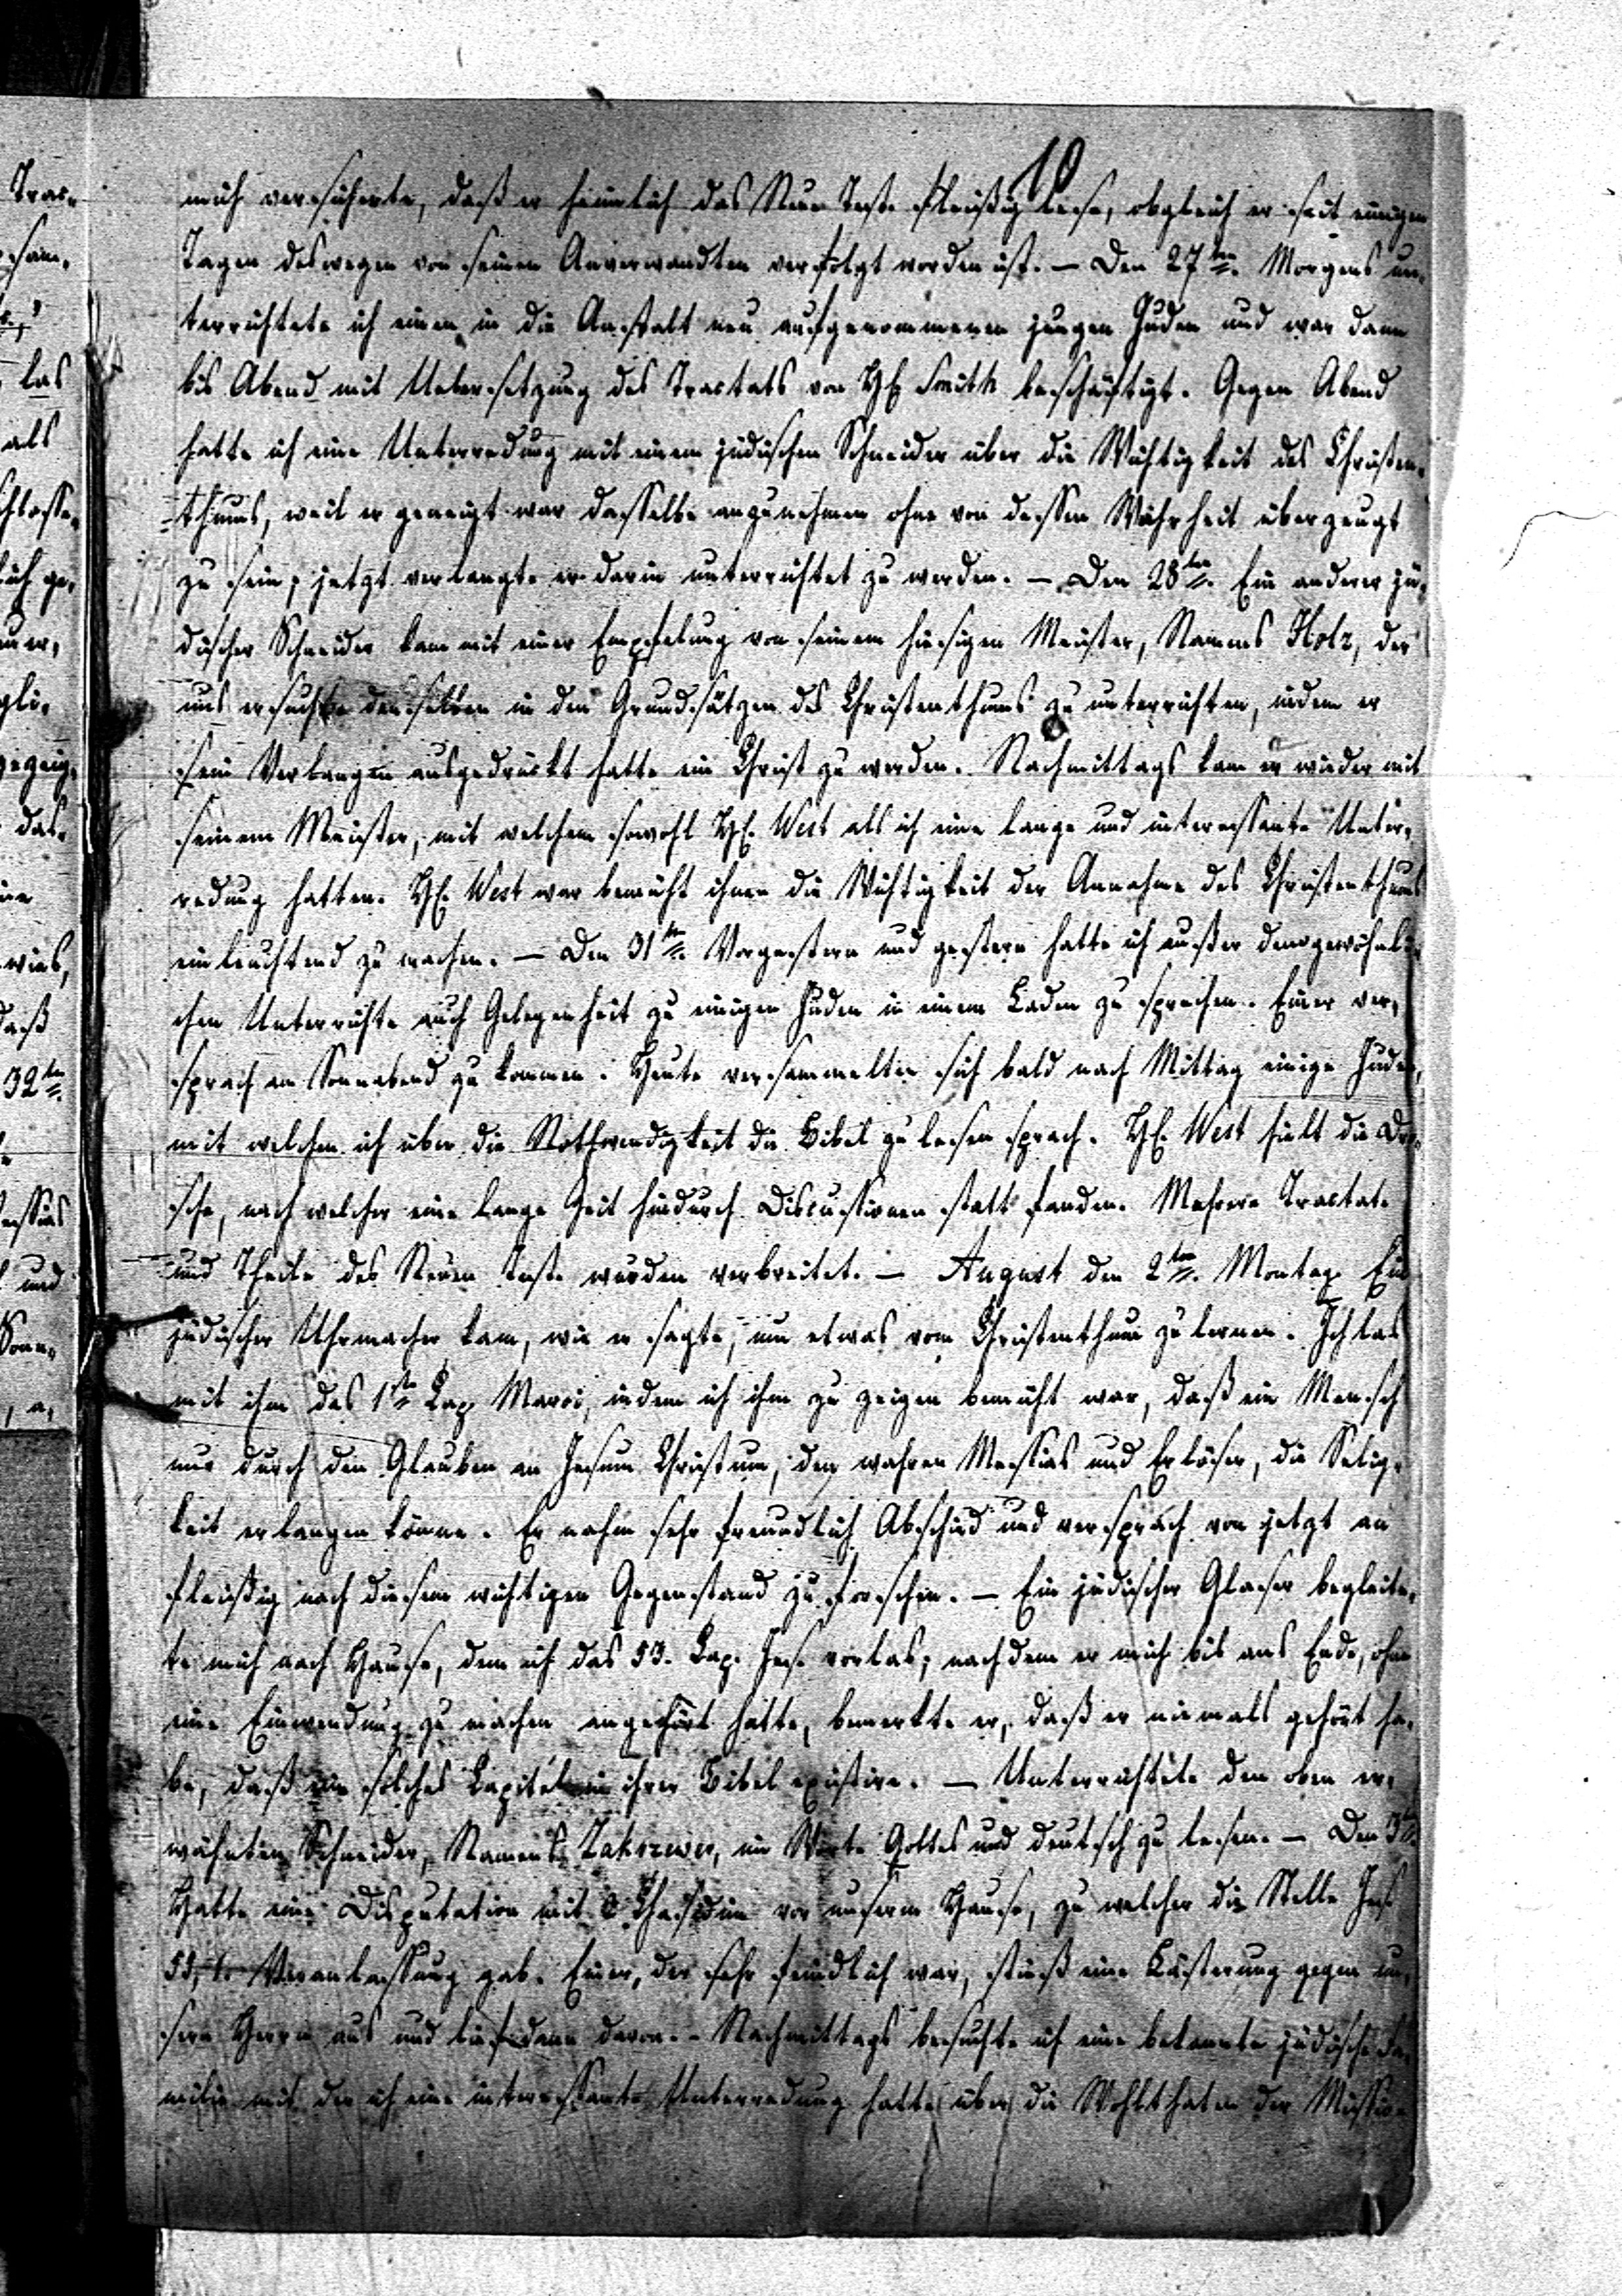 10
mich versicherte, daß er heimlich das Neue Test. fleißig lese, obgleich er seit einigen
Tagen deswegen von seinen Anverwandten verfolgt worden ist. — Den 27ten. Morgens un-
terrichtete ich einen in die Anstalt neu aufgenommenen jungen Juden und war dann
bis Abend mit Uebersetzung des Tractats von H. Smith beschäftigt. Gegen Abend
hatte ich eine Unterredung mit einem jüdischen Schneider über die Wichtigkeit des Christen-
thums, weil er geneigt war dasselbe anzunehmen ohne von dessen Wahrheit überzeugt
zu sein; jetzt verlangte er darin unterrichtet zu werden. — Den 28ten. Ein anderer jü-
discher Schneider kam mit einer Empfelung von seinem hiesigen Meister, Namens Holz, der
uns ersuchte denselben in den Grundsätzen des Christenthums zu unterrichten, indem er
sein Verlangen ausgedrückt hatte ein Christ zu werden. Nachmittags kam er wieder mit
seinem Meister, mit welchem sowohl H. West als ich eine lange und interessante Unter-
redung hatten. H. West war bemüht ihnen die Wichtigkeit der Annahme des Christenthums
einleuchtend zu machen. — Den 31ten. Vorgestern und gestern hatte ich außer dem gewöhnli-
chen Unterrichte auch Gelegenheit zu einigen Juden in einem Laden zu sprechen. Einer ver-
sprach am Sonnabend zu kommen. Heute versammelten sich bald nach Mittag einige Juden,
mit welchen ich über die Nothwendigkeit die Bibel zu lesen sprach. H. West hielt die Dra-
sche, nach welcher eine lange Zeit hindurch Discussionen statt fanden. Mehrere Tractate
und Theile des Neuen Test. wurden verbreitet. — August den 2ten. Montag. Ein
jüdischer Uhrmacher kam, wie er sagte, um etwas vom Christenthum zu lernen. Ich las
mit ihm das 1te Cap. Marci, indem ich ihm zu zeigen bemüht war, daß ein Mensch
nur durch den Glauben an Jesum Christum, den wahren Messias und Erlöser, die Selig-
keit erlangen könne. Er nahm sehr freundlich Abschied und versprach von jetzt an
fleißig nach diesem wichtigen Gegenstand zu forschen. — Ein jüdischer Glaser begleite-
te mich nach Hause, dem ich das 53. Cap. Jes. vorlas; nachdem er mich bis ans Ende, ohne
eine Einwendung zu machen angehört hatte, bemerkte er, daß er niemals gehört ha-
be, daß ein solches Capitel in ihrer Bibel existire. — Unterrichtete den oben er-
wähnten Schneider, Namens Zakrzewer, im Worte Gottes und deutsch zu lesen. — Den 3ten.
Hatte eine Disputation mit Chasidim vor unserm Hause, zu welcher die Stelle Jes.
53, 1. Veranlassung gab. Einer, der sehr feindlich war, stieß eine Lästerung gegen un-
sern Herrn aus und lief dann davon. - Nachmittags besuchte ich eine bekannte jüdische Fa-
milie mit der ich eine interessante Unterredung hatte über die Wohlthaten der Mission